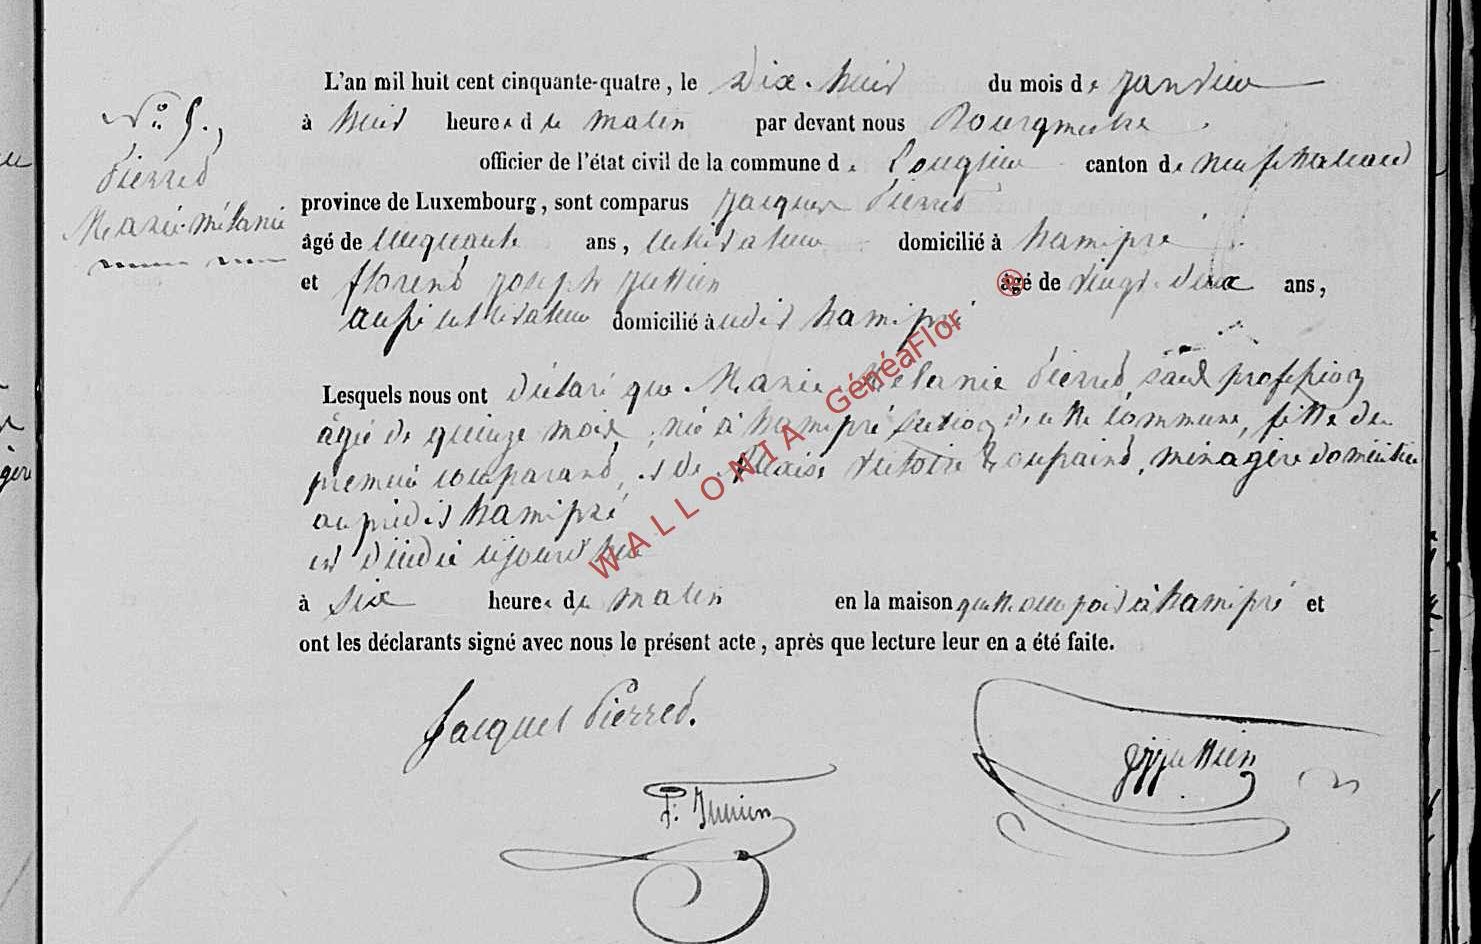 L'an mil huit cent cinquante-quatre, le dix-huit du mois de janvier
à huit heures du matin par devant nous Bourgmestre
officier de l'état civil de la commune de Longlier canton de neufchateau
province de Luxembourg, sont comparus jacques Pierred
âgé de cinquante ans, cultivateur domicilié à hamipré
et florend joseph ans,
âgé de vingt-deux
aussi cultivateur domicilié à udit hamipré
Lesquels nous ont déclaré que Marie Mélanie Pierred sans profession
âgée de quinze mois, née à hamipré section de cette commune, fille du
premier comparand, et de victoire ménagère domiciliée
au prédit hamipré
est décédée aujourd'hui
à six heures du matin en la maison qu'elle occupoit à hamipré et
ont les déclarants signé avec nous le présent acte, après que lecture leur en a été faite.
N° 5.
Pierred
Marie-mélanie
Jacques Pierred.
WALLONIA GénéaFlor ®